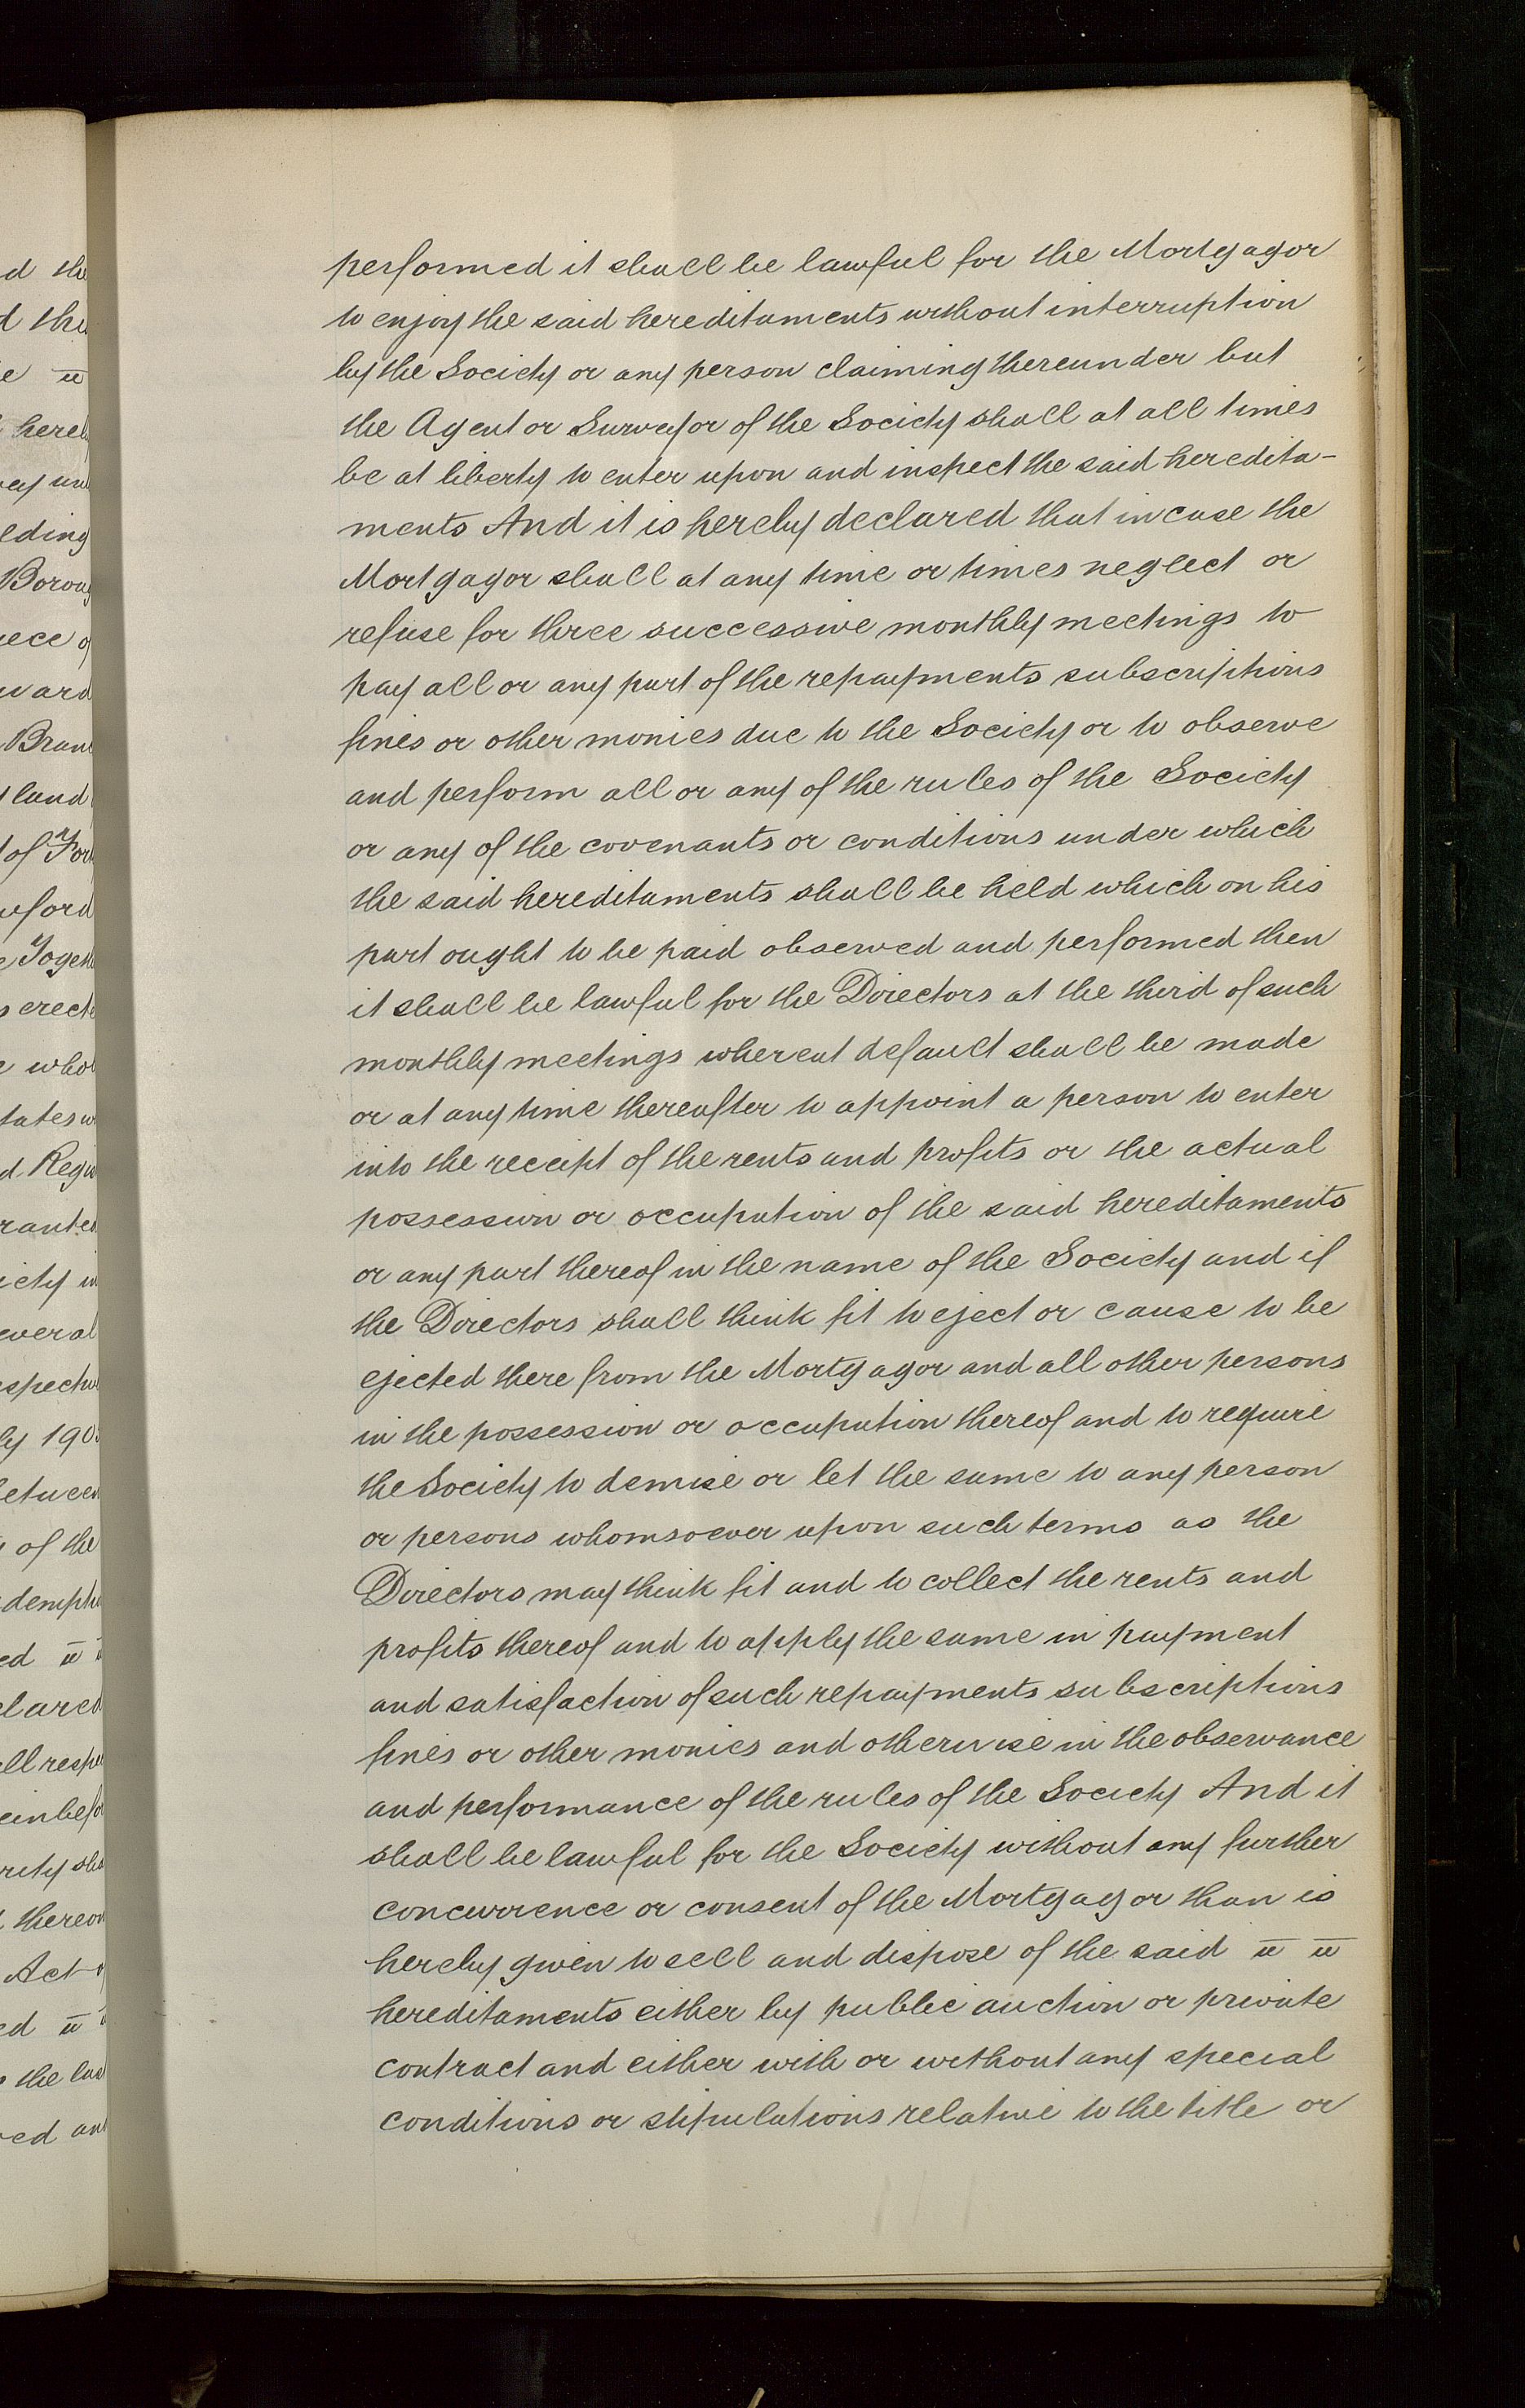 performed it shall be lawful for the Mortgagor
to enjoy the said hereditaments without interruption
by the Society or any person claiming thereunder but
the Agent or Surveyor of the Society shall at all times
be at liberty to enter upon and inspect the said heredita-
ments And it is hereby declared that in case the
Mortgagor shall at any time or times neglect or
refuse for three successive monthly meetings to
pay all or any part of the repayments subscriptions
fines or other monies due to the Society or to observe
and perform all or any of the rules of the Society
or any of the covenants or conditions under which
the said hereditaments shall be held which on his
part ought to be paid observed and performed then
it shall be lawful for the Directors at the third of such
monthly meetings whereat default shall be made
or at any time thereafter to appoint a person to enter
into the receipt of the rents and profits or the actual
possession or occupation of the said hereditaments
or any part thereof in the name of the Society and if
the Directors shall think fit to eject or cause to be
ejected there from the Mortgagor and all other persons
in the possession or occupation thereof and to require
the Society to demise or let the same to any person
or persons whomsoever upon such terms as the
Directors may think fit and to collect the rents and
profits thereof and to apply the same in payment
and satisfaction of such repayments subscriptions
fines or other monies and otherwise in the observance
and performance of the rules of the Society And it
shall be lawful for the Society without any further
concurrence or consent of the Mortgagor than is
hereby given to sell and dispose of the said
hereditaments either by public auction or private
contract and either with or without any special
conditions or stipulations relative to the title or